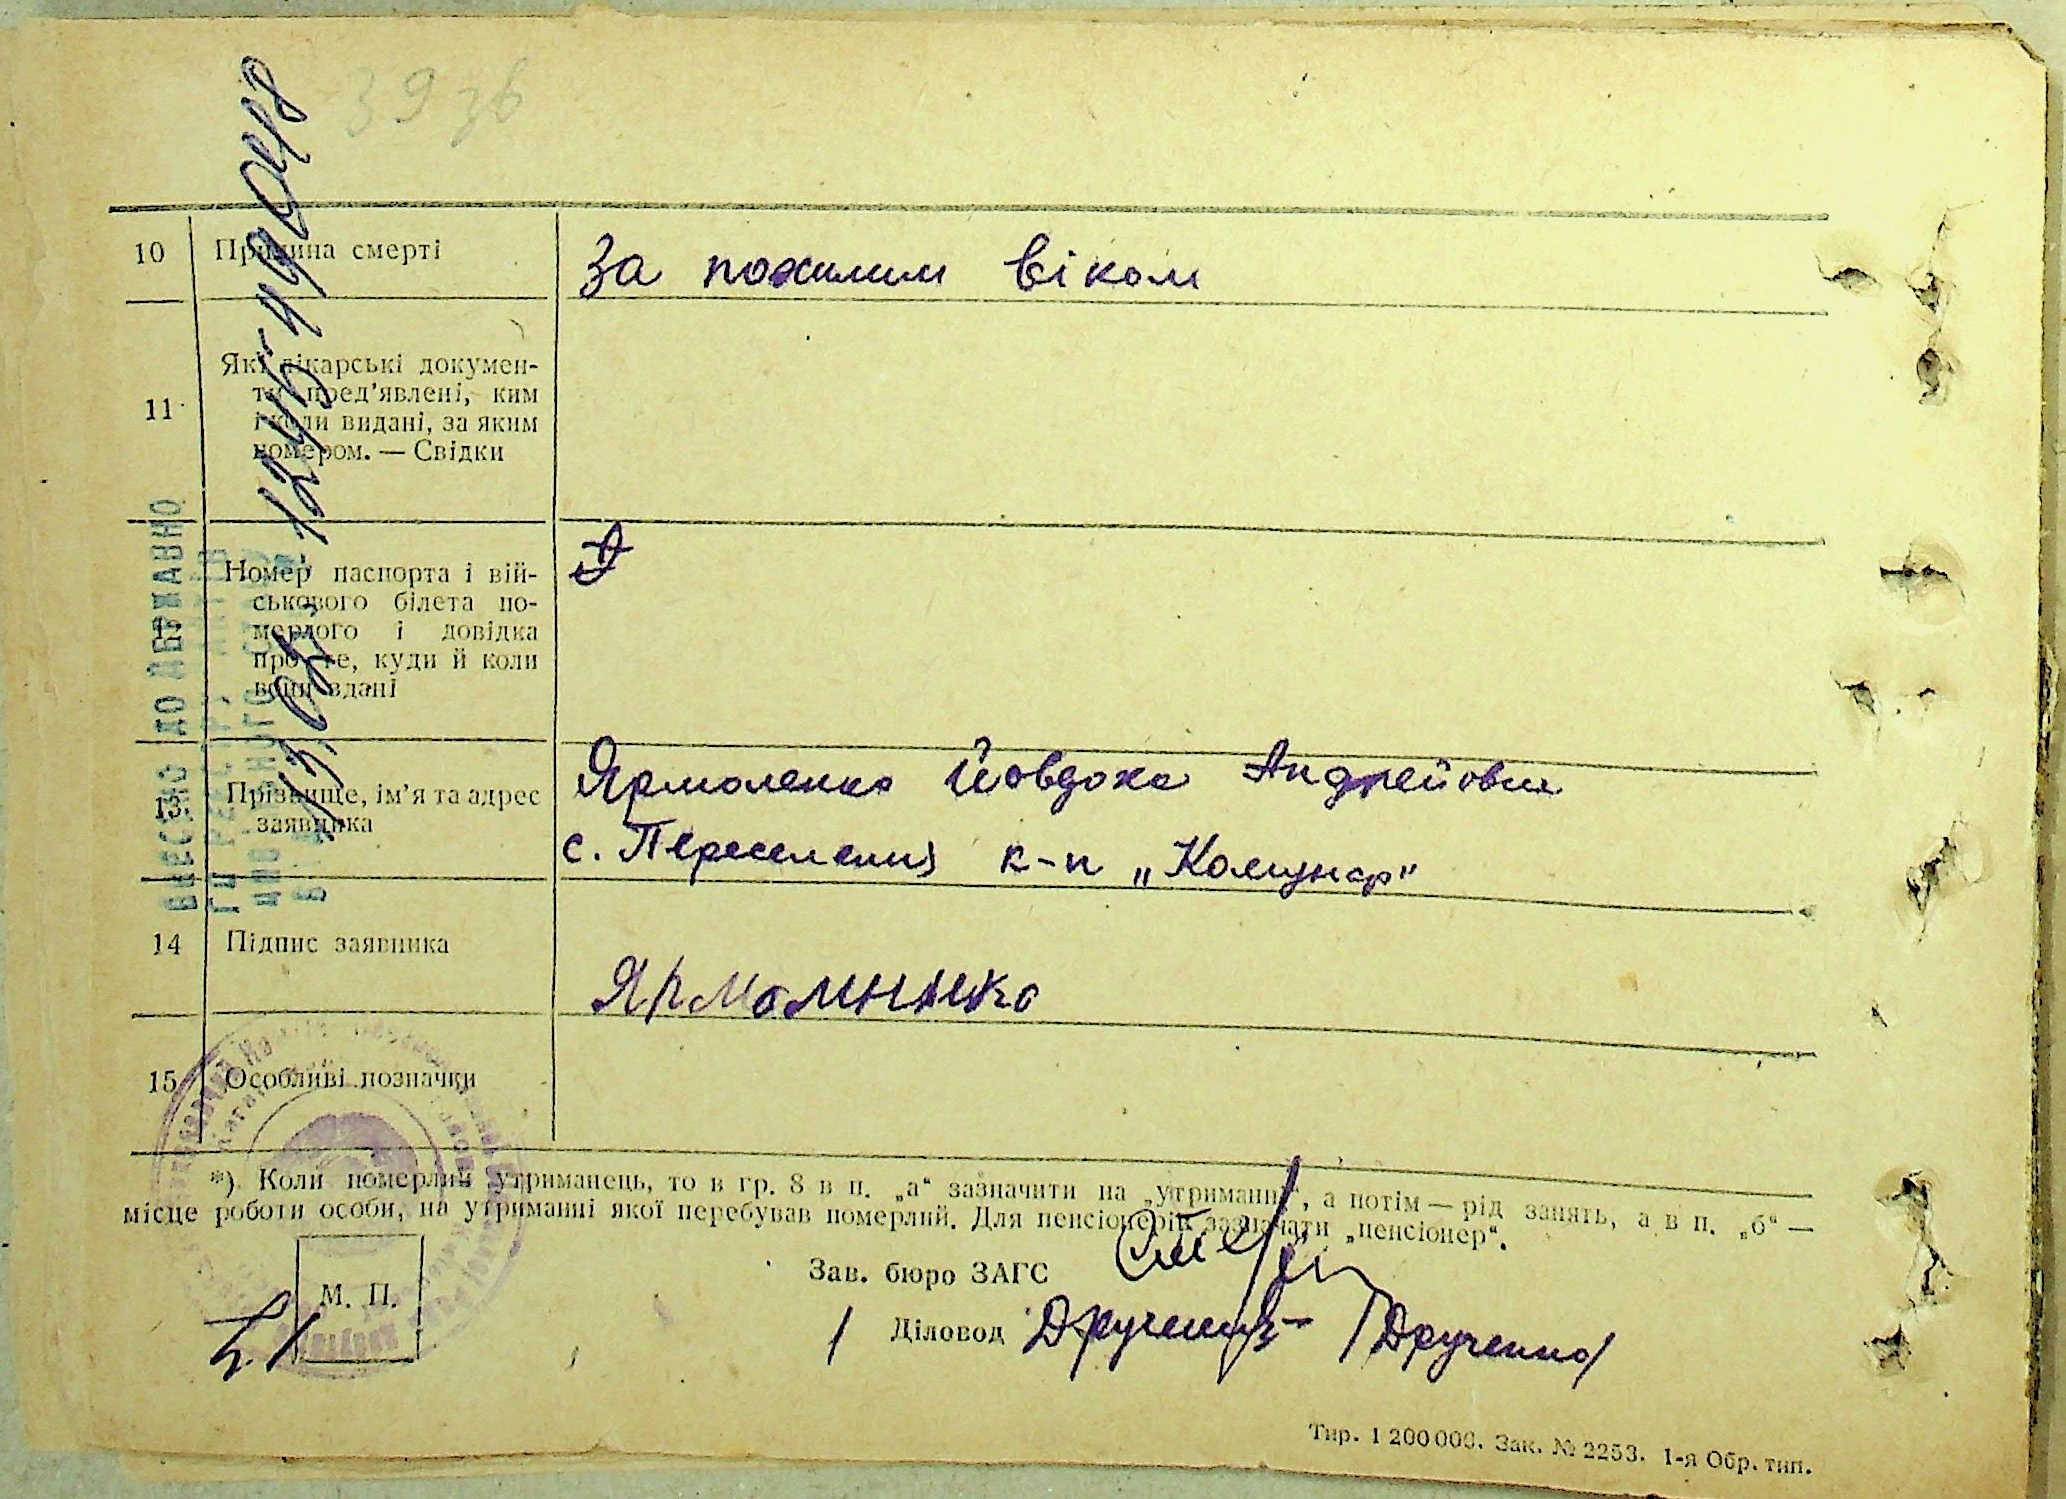 39 зв
10 Причина смерті За похилим віком
11 Які лікарські докумен-
ти пред'явлені, ким
і коли видані, за яким
номером. — Свідки
12 Номер паспорта і вій-
ськового білета по-
мерлого і довідка
про те, куди й коли
вони здані
13 Прізвище, ім'я та адрес
заявника
Ярмоленко Йовдоха Андрейовна
с. Переселення к-п „Комунар"
14 Підпис заявника
Ярмолинко
15 Особливі позначки
ВНЕСЕНО ДО ДЕРЖАВНО
ГО РЕЄСТРУ АКТІВ
*) Коли померлий утриманець, то в гр. 8 в п. „а" зазначити на „утриманні", а потім — рід занять, а в п. „б" —
місце роботи особи, на утриманні якої перебував померлий. Для пенсіонерів зазначати „пенсіонер".
М. П.
Зав. бюро ЗАГС
Діловод Друченко /Друченко/
Тир. 1 200 000. Зак. № 2253. 1-я Обр. тип.